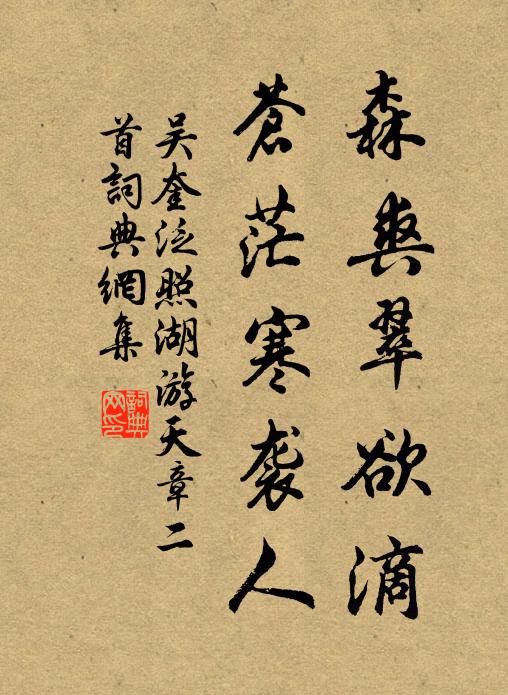 森爽翠欲滴
蒼茫寒袭人
吴奎泛照湖游天章二
首詞典網集
詞典
网印